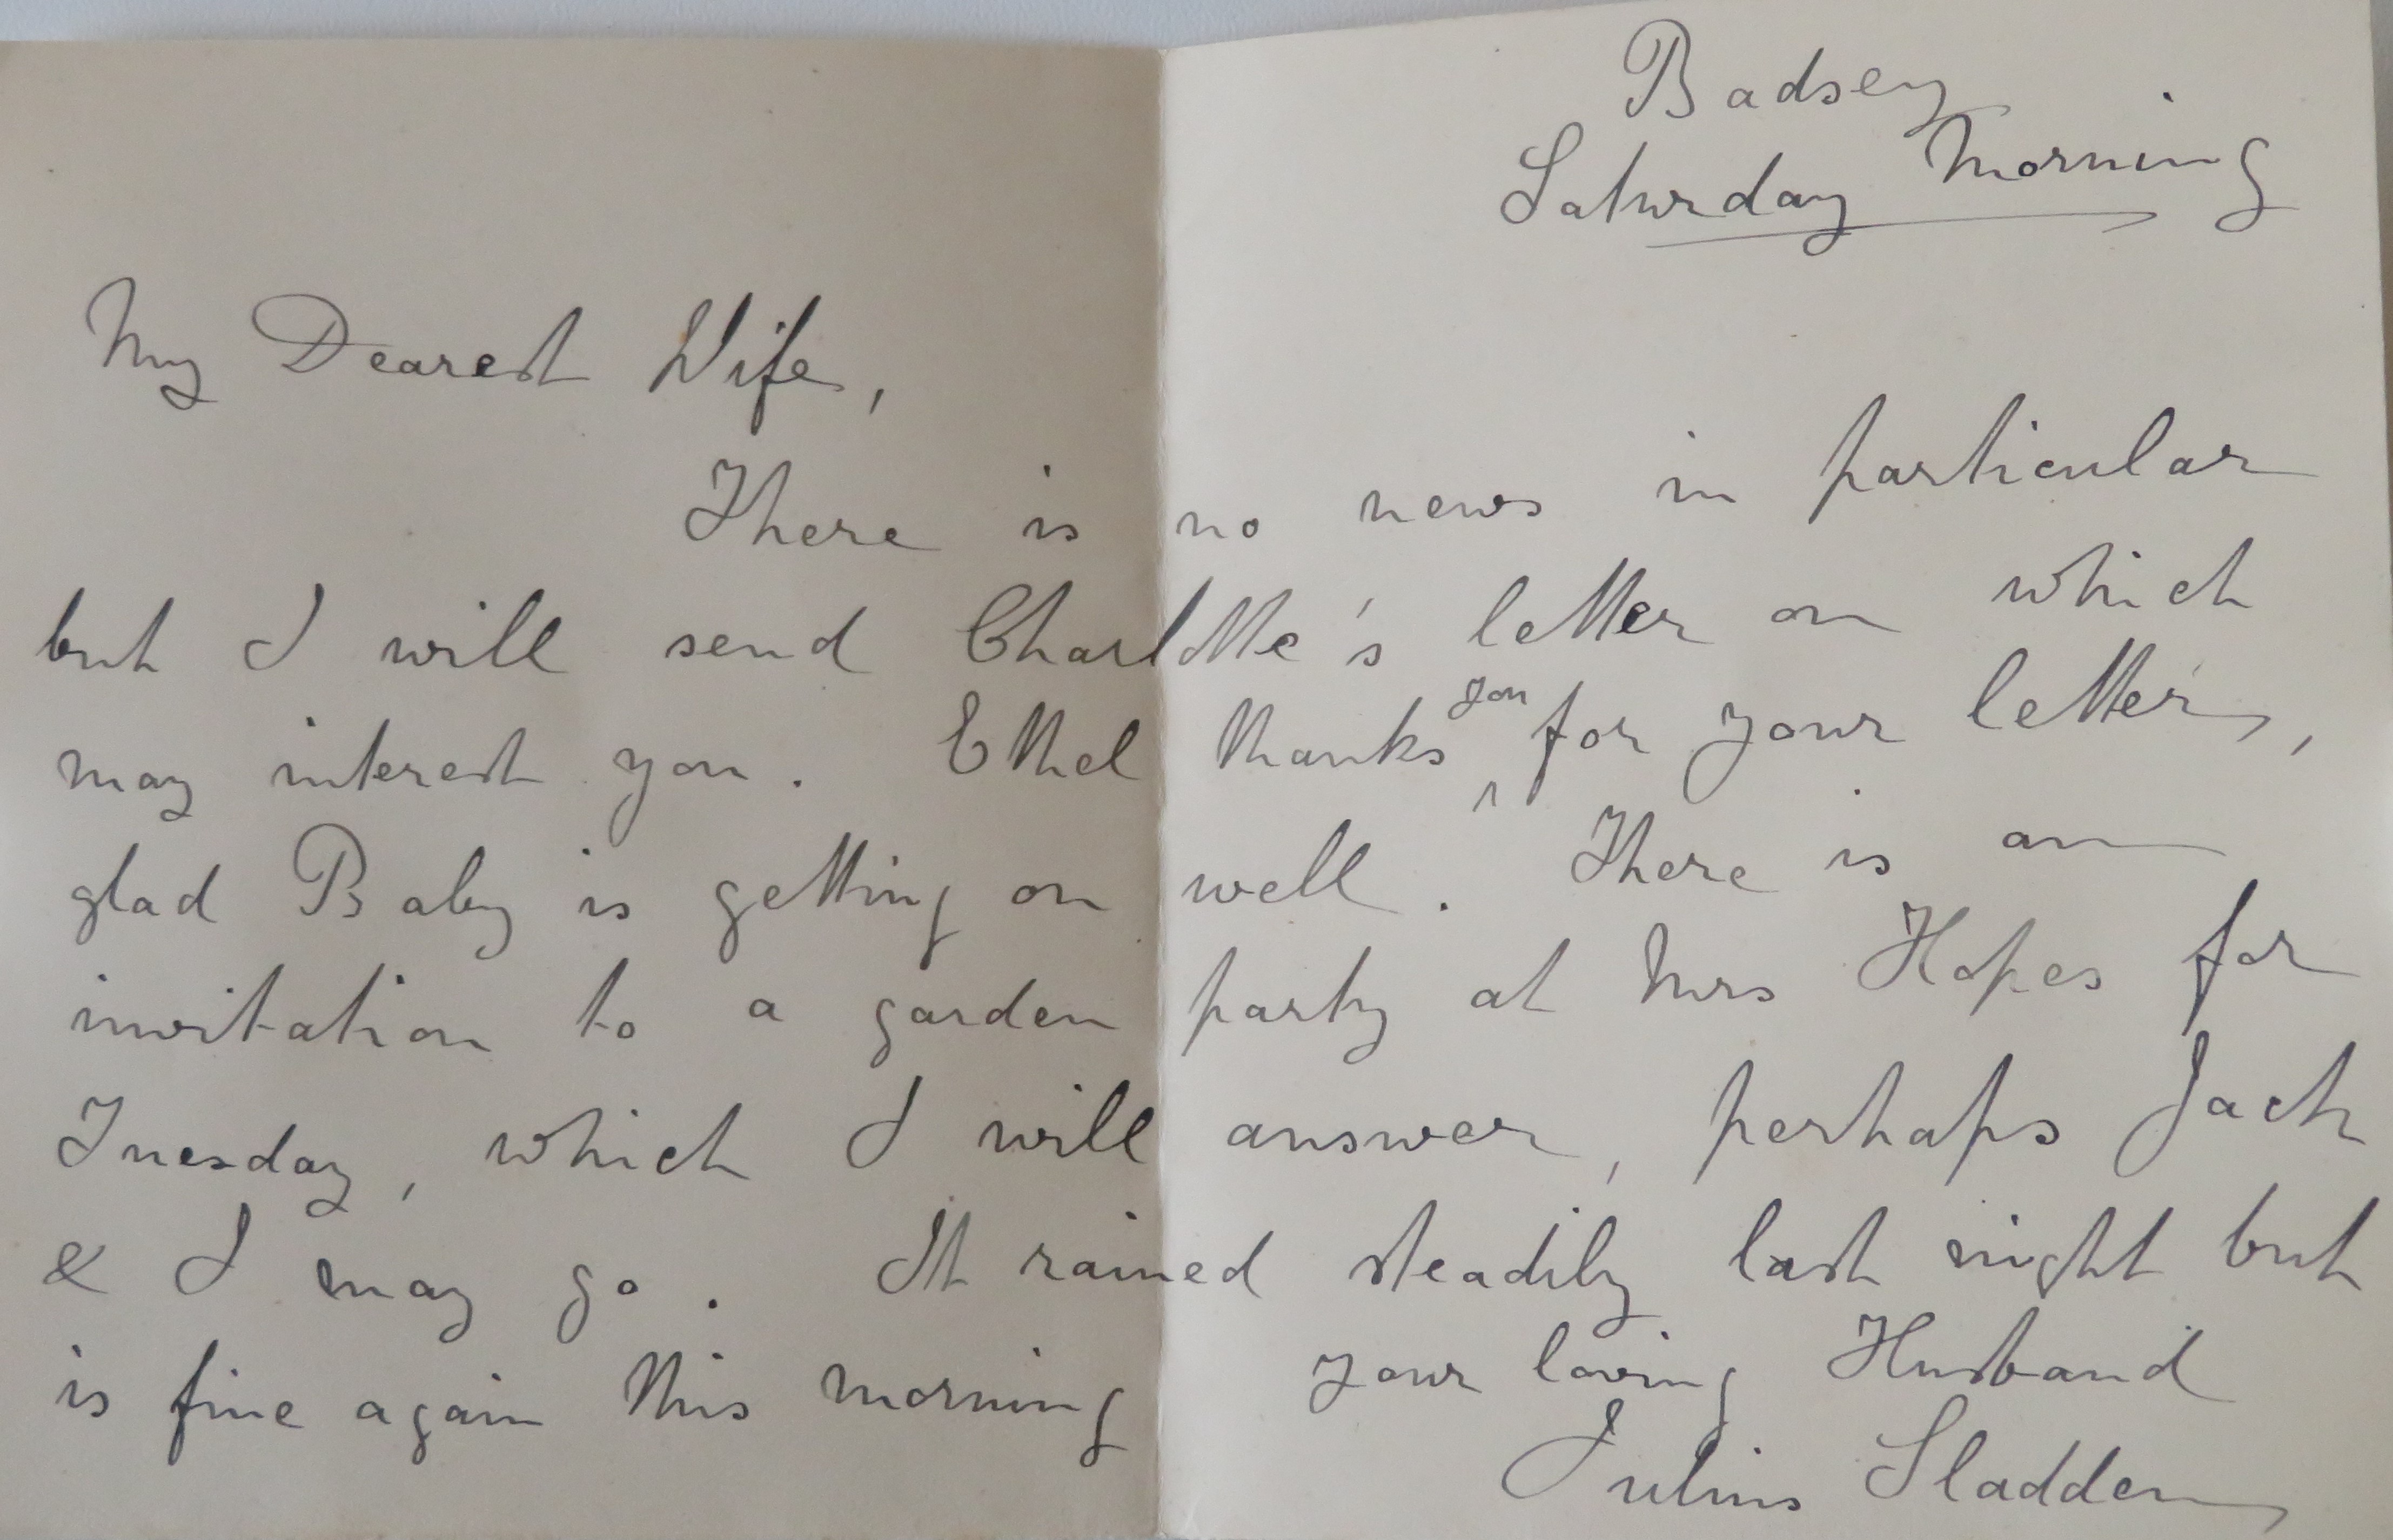 Badsey
Saturday Morning
My Dearest Wife,
There is no news in particular
but I will send Charlotte's letter on which
may interest you. Ethel thanks you for your letter,
glad Baby is getting on well. There is an
invitation to a garden party at Mrs Hopes for
Tuesday, which I will answer, perhaps Jack
& I may go. It rained steadily last night but
is fine again this morning your loving Husband
Julius Sladden